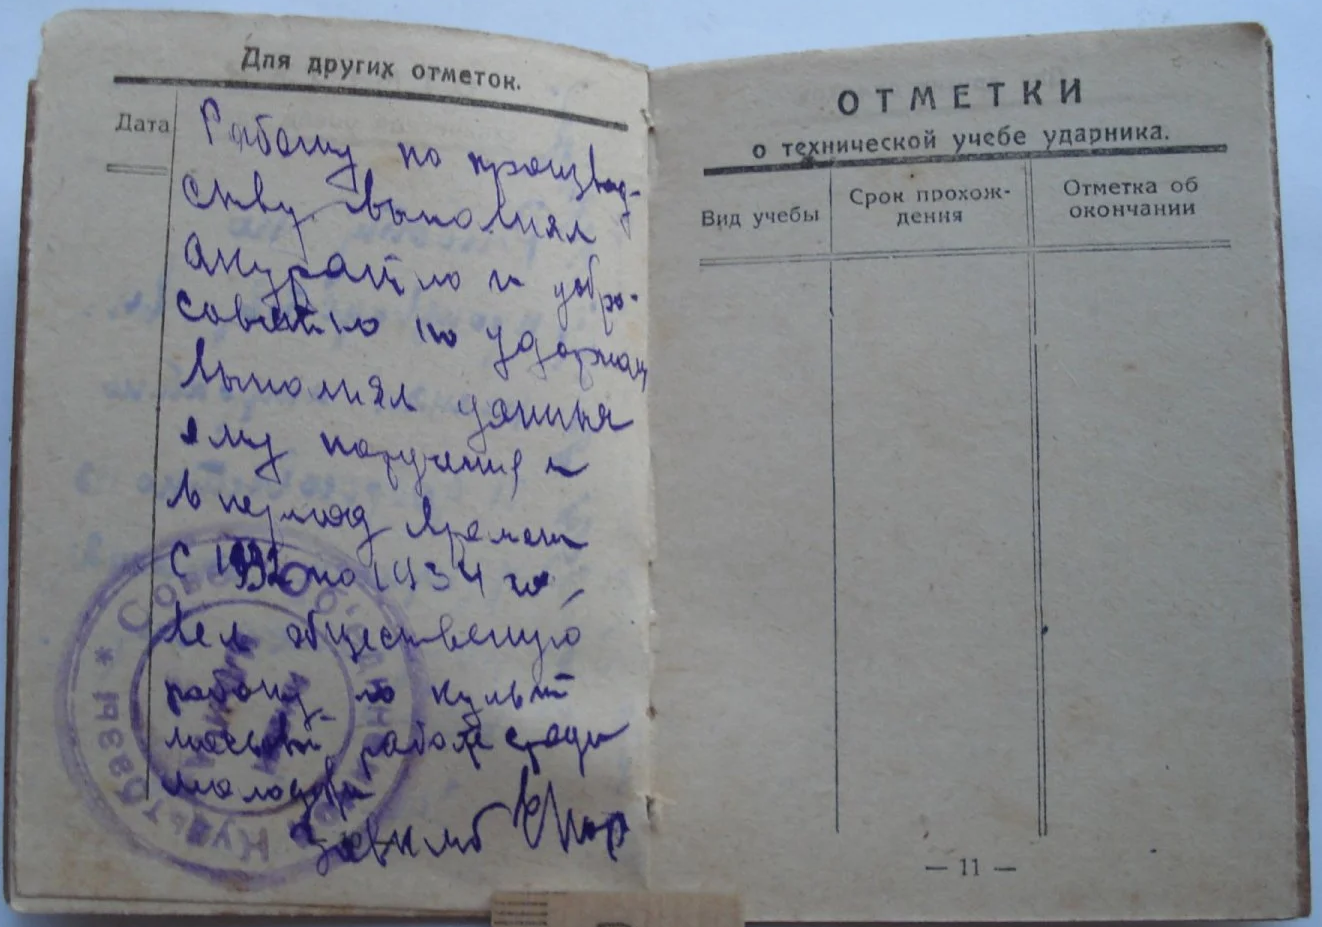 Для других отметок.
Дата
Работу по производ-
ству выполнял
акуратно и добро-
совестно по ударному
выполнял данныя
ему поручения и
в период времени
с 1932 по 1934 год
вел общественную
работу по культ
массовой работе среди
молодежи
Завклуб
Культбазы * Совет
ОТМЕТКИ
о технической учебе ударника.
Вид учебы
Срок прохож-
дения
Отметка об
окончании
— 11 —